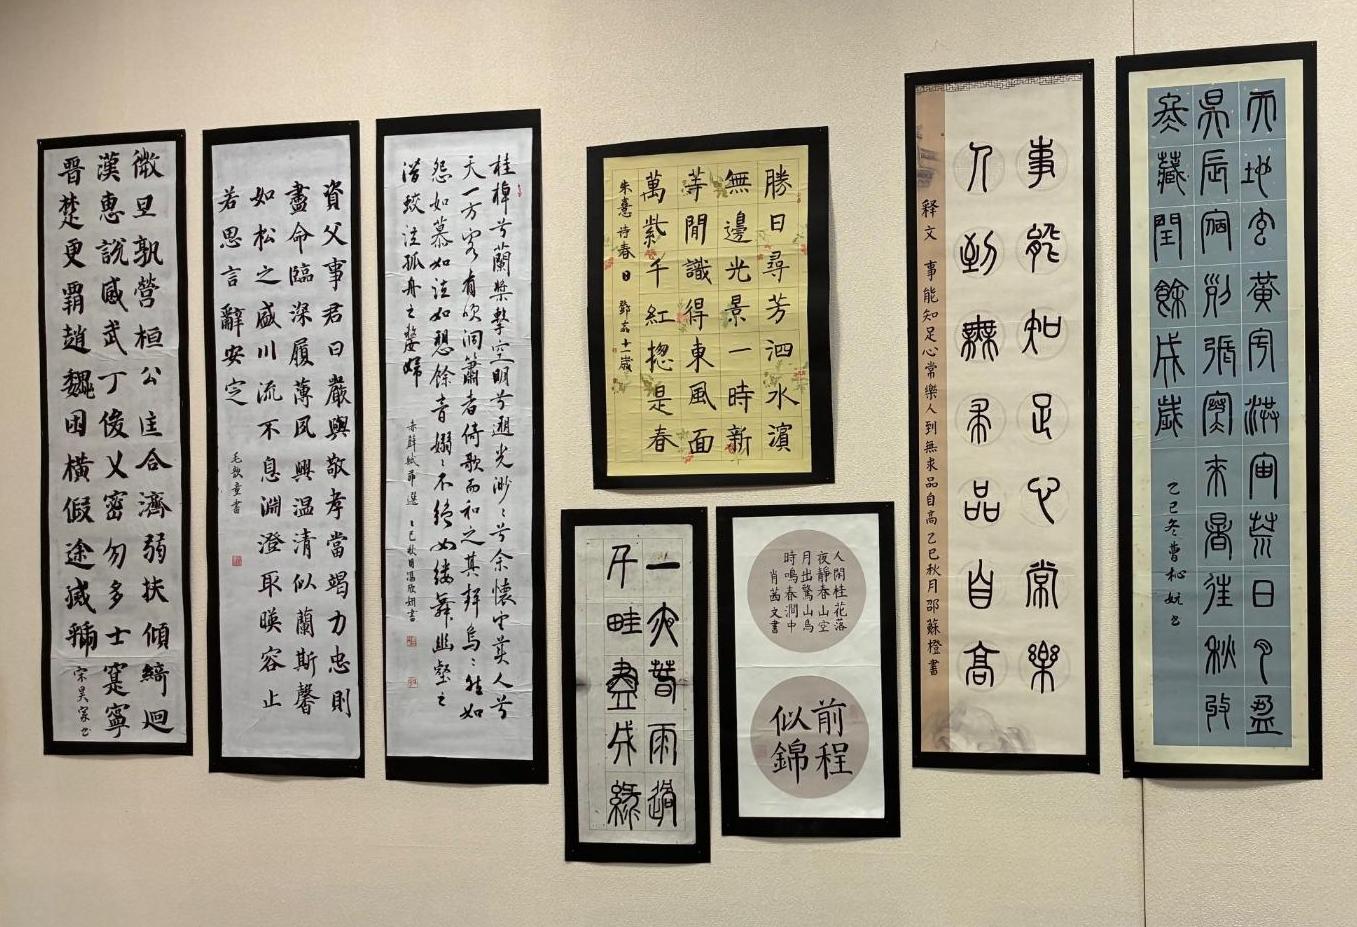 微旦孰營桓公匡合濟弱扶傾綺迴
漢惠說感武丁俊乂密勿多士寔寧
晉楚更霸趙魏困橫假途滅虢
宋昊家书
資父事君曰嚴與敬孝當竭力忠則
盡命臨深履薄夙興温清似蘭斯馨
如松之盛川流不息淵澄取暎容止
若思言辭安定
毛歆童書
桂棹兮蘭槳擊空明兮遡光渺〻兮余懷望美人兮
天一方客有吹洞簫者倚歌而和之其聲烏〻然如
怨如慕如泣如愬餘音嫋〻不絕如縷舞幽壑之
潛蛟泣孤舟之嫠婦
赤壁賦節選 乙巳秋月馮欣妍書
勝日尋芳泗水濱
無邊光景一時新
等閒識得東風面
萬紫千紅揔是春
朱熹詩春日 鄧淼十一歲
一夜春雨過
千畦盡成綠
人閒桂花落
夜靜春山空
月出驚山鳥
時鳴春澗中
肖茜文書
前程
似錦
事能知足心常樂
人到無求品自高
释文 事能知足心常樂人到無求品自高 乙巳秋月邵蘇橙書
天地玄黃宇洪宙荒日月盈
昃辰宿列張寒來暑往秋收
冬藏閏餘成歲
乙巳冬曹松妧书